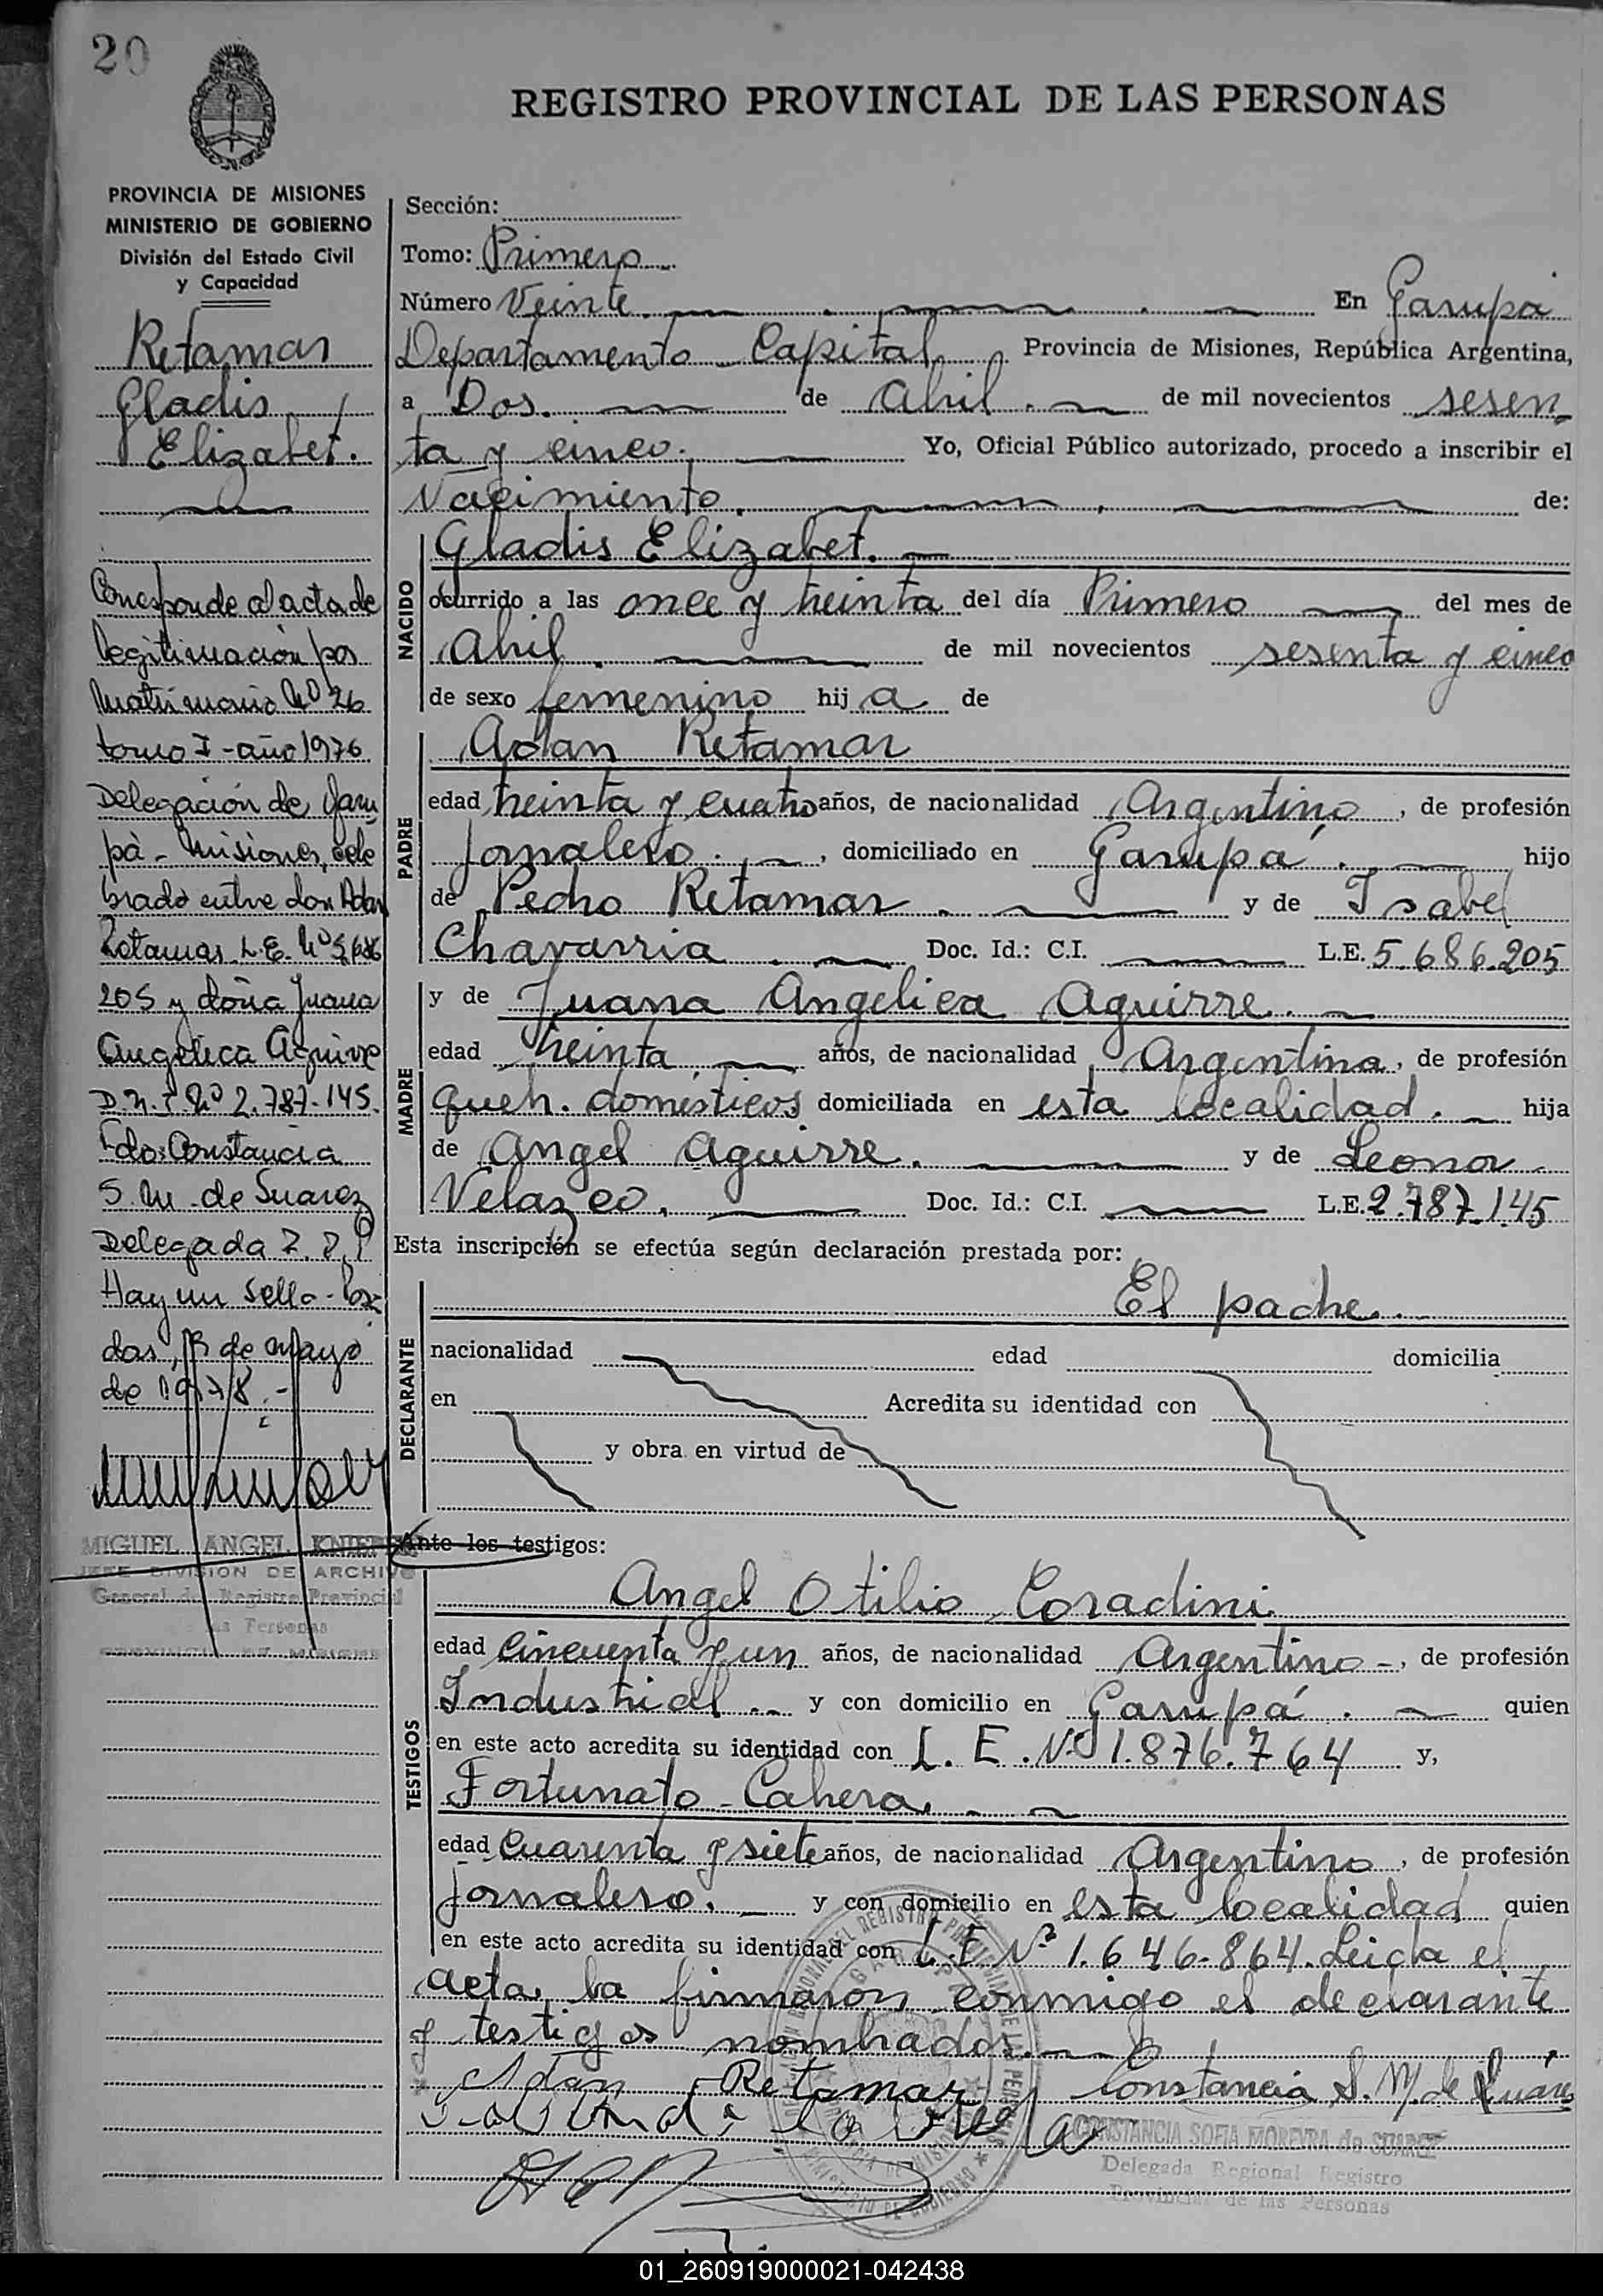 20
REGISTRO PROVINCIAL DE LAS PERSONAS
PROVINCIA DE MISIONES
MINISTERIO DE GOBIERNO
División del Estado Civil
y Capacidad
Retamar
Gladis
Elizabet.
Corresponde al acta de
legitimación por
matrimonio Nº 26
tomo I - año 1976
Delegación de Garu
pá - Misiones, cele
brado entre don Adan
Retamar L.E. Nº 5.686
205 y doña Juana
Angelica Aguirre
D.N.I. Nº 2.787.145.
Fdo: Constancia
S. M. de Suarez
Delegada R. P. P
Hay un sello - Posa
das, de Mayo
de 1978.-
MIGUEL ANGEL
JEFE DIVISION DE ARCHIVO
General del Registro Provincial
las Personas
PROVINCIA DE MISIONES
Sección:
Tomo: Primero
Número Veinte. En Garupá
Departamento Capital, Provincia de Misiones, República Argentina,
a Dos. de Abril. de mil novecientos sesen
ta y cinco. Yo, Oficial Público autorizado, procedo a inscribir el
Nacimiento. de:
NACIDO
Gladis Elizabet.
ocurrido a las once y treinta del día Primero del mes de
Abril. de mil novecientos sesenta y cinco
de sexo femenino hij a de
PADRE
Adan Retamar
edad treinta y cuatro años, de nacionalidad Argentino, de profesión
Jornalero. , domiciliado en Garupá. hijo
de Pedro Retamar. y de Isabel
Chavarria. Doc. Id.: C.I. L.E. 5.686.205
MADRE
y de Juana Angelica Aguirre.
edad treinta años, de nacionalidad Argentina, de profesión
queh. domésticos domiciliada en esta localidad. hija
de Angel Aguirre. y de Leonor
Velazco. Doc. Id.: C.I. L.E. 2.787.145
Esta inscripción se efectúa según declaración prestada por:
DECLARANTE
El padre.
nacionalidad edad domicilia
en Acredita su identidad con
y obra en virtud de
Ante los testigos:
TESTIGOS
Angel Otilio Coradini.
edad Cincuenta y un años, de nacionalidad Argentino-, de profesión
Industrial.. y con domicilio en Garupá. quien
en este acto acredita su identidad con L. E. Nº 1.876.764 y,
Fortunato Cabrera.
edad Cuarenta y siete años, de nacionalidad Argentino, de profesión
Jornalero. y con domicilio en esta localidad quien
en este acto acredita su identidad con L.E Nº 1.646.864. Leida el
acta, la firmaron conmigo el declarante
y testigos nombrados.
Adan Retamar Constancia S. M. de Suárez
CONSTANCIA SOFIA MOREYRA de SUAREZ
Delegada Regional Registro
Provincial de las Personas
01_260919000021-042438